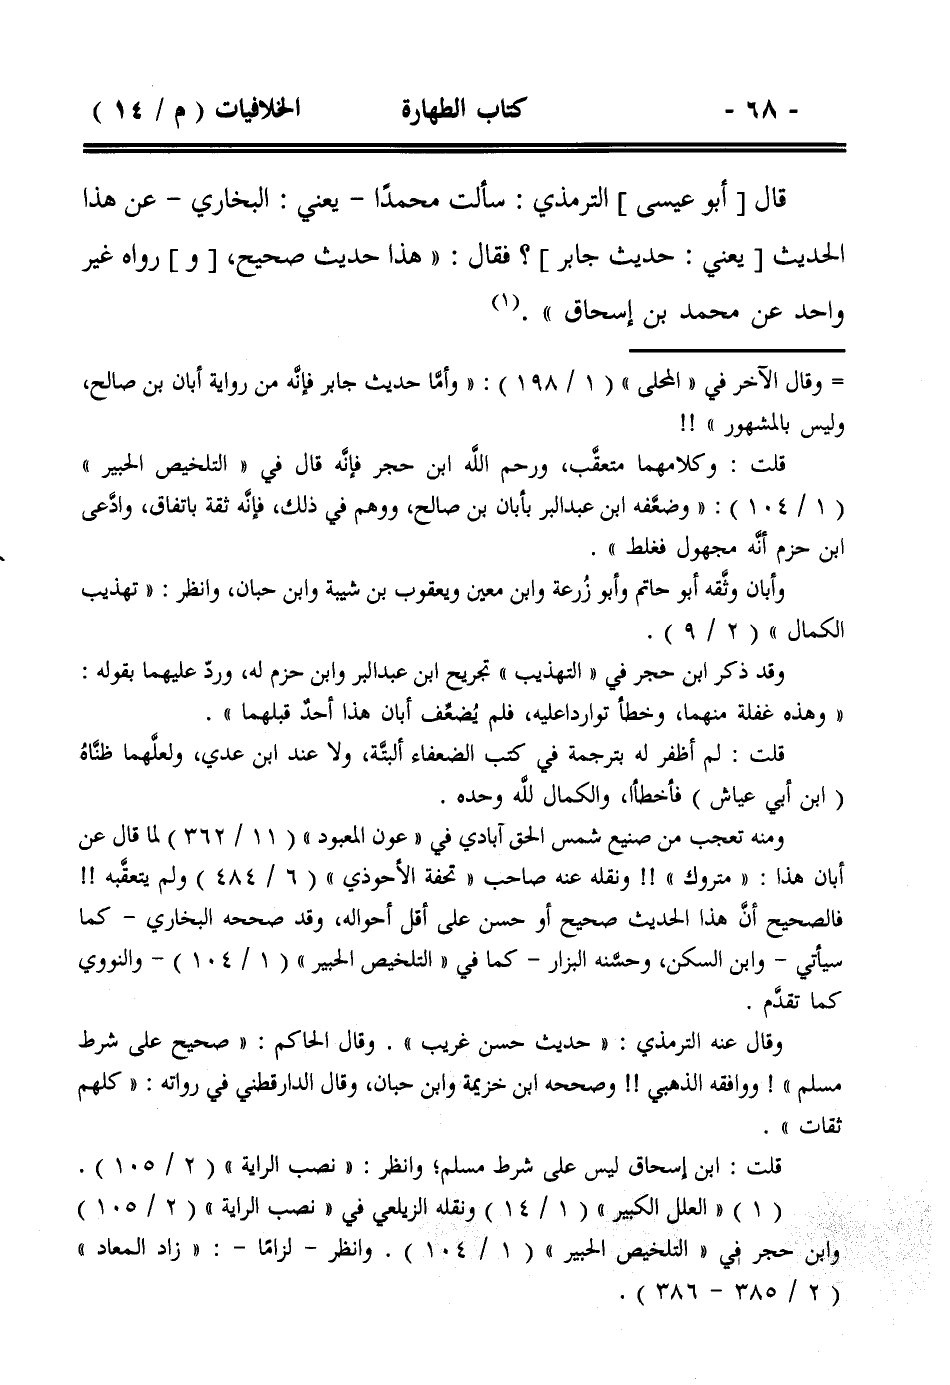 - ٦٨ - كتاب الطهارة الخلافيات ( م / ١٤ )
قال [ أبو عيسى ] الترمذي : سألت محمدًا – يعني : البخاري – عن هذا
الحديث [ يعني : حديث جابر ] ؟ فقال : « هذا حديث صحيح، [ و ] رواه غير
واحد عن محمد بن إسحاق » .(١)
= وقال الآخر في « المحلى » ( ١ / ١٩٨ ) : « وأمَّا حديث جابر فإنَّه من رواية أبان بن صالح،
وليس بالمشهور » !!
قلت : وكلامهما متعقَّب، ورحم اللَّه ابن حجر فإنَّه قال في « التلخيص الحبير »
( ١ / ١٠٤ ) : « وضعَّفه ابن عبدالبر بأبان بن صالح، ووهم في ذلك، فإنَّه ثقة باتفاق، وادَّعى
ابن حزم أنَّه مجهول فغلط » .
وأبان وثَّقه أبو حاتم وأبو زُرعة وابن معين ويعقوب بن شيبة وابن حبان، وانظر : « تهذيب
الكمال » ( ٢ / ٩ ) .
وقد ذكر ابن حجر في « التهذيب » تجريح ابن عبدالبر وابن حزم له، وردّ عليهما بقوله :
« وهذه غفلة منهما، وخطأ تواردا‌عليه، فلم يُضعِّف أبان هذا أحدٌ قبلهما » .
قلت : لم أظفر له بترجمة في كتب الضعفاء ألبتَّة، ولا عند ابن عدي، ولعلَّهما ظنَّاهُ
( ابن أبي عياش ) فأخطأا، والكمال للَّه وحده .
ومنه تعجب من صنيع شمس الحق آبادي في « عون المعبود » ( ١١ / ٣٦٢ ) لما قال عن
أبان هذا : « متروك » !! ونقله عنه صاحب « تحفة الأحوذي » ( ٦ / ٤٨٤ ) ولم يتعقَّبه !!
فالصحيح أنَّ هذا الحديث صحيح أو حسن على أقل أحواله، وقد صححه البخاري – كما
سيأتي – وابن السكن، وحسَّنه البزار – كما في « التلخيص الحبير » ( ١ / ١٠٤ ) – والنووي
كما تقدَّم .
وقال عنه الترمذي : « حديث حسن غريب » . وقال الحاكم : « صحيح على شرط
مسلم » ! ووافقه الذهبي !! وصححه ابن خزيمة وابن حبان، وقال الدارقطني في رواته : « كلهم
ثقات » .
قلت : ابن إسحاق ليس على شرط مسلم؛ وانظر : « نصب الراية » ( ٢ / ١٠٥ ) .
( ١ ) « العلل الكبير » ( ١ / ١٤ ) ونقله الزيلعي في « نصب الراية » ( ٢ / ١٠٥ )
وابن حجر في « التلخيص الحبير » ( ١ / ١٠٤ ) . وانظر – لزامًا – : « زاد المعاد »
( ٢ / ٣٨٥ – ٣٨٦ ) .